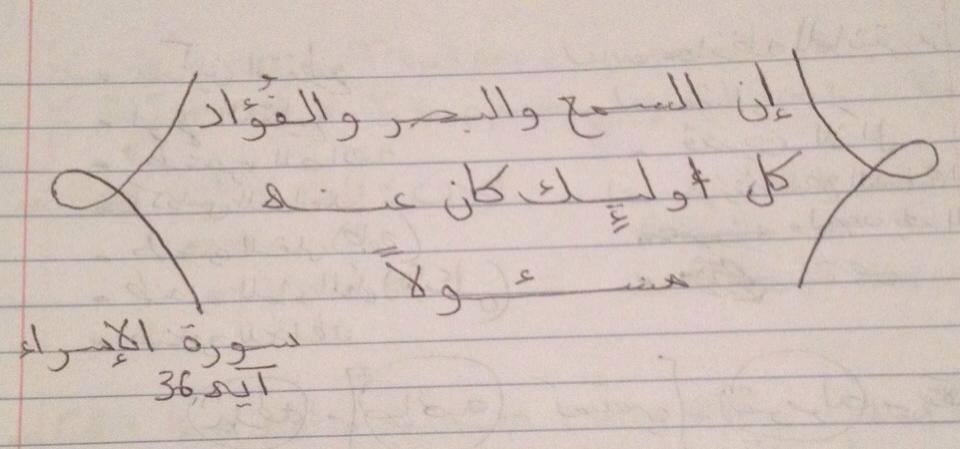 إن السمع والبصر والفُؤاد
كل أولئك كان عنه
مسئولاً
سورة الإسراء
آيه 36